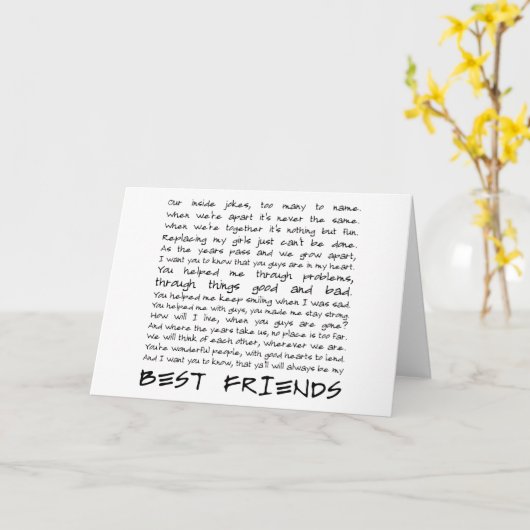 Our inside jokes, too many to name.
When we're apart it's never the same.
When we're together it's nothing but fun.
Replacing my girls just can't be done.
As the years pass and we grow apart,
I want you to know that you guys are in my heart.
You helped me through problems,
through things good and bad.
You helped me keep smiling when I was sad.
You helped me with guys, you made me stay strong.
How will I live, when you guys are gone?
And where the years take us, no place is too far.
We will think of each other, wherever we are.
You're wonderful people, with good hearts to lend.
And I want you to know, that ya'll will always be my
BEST FRIENDS